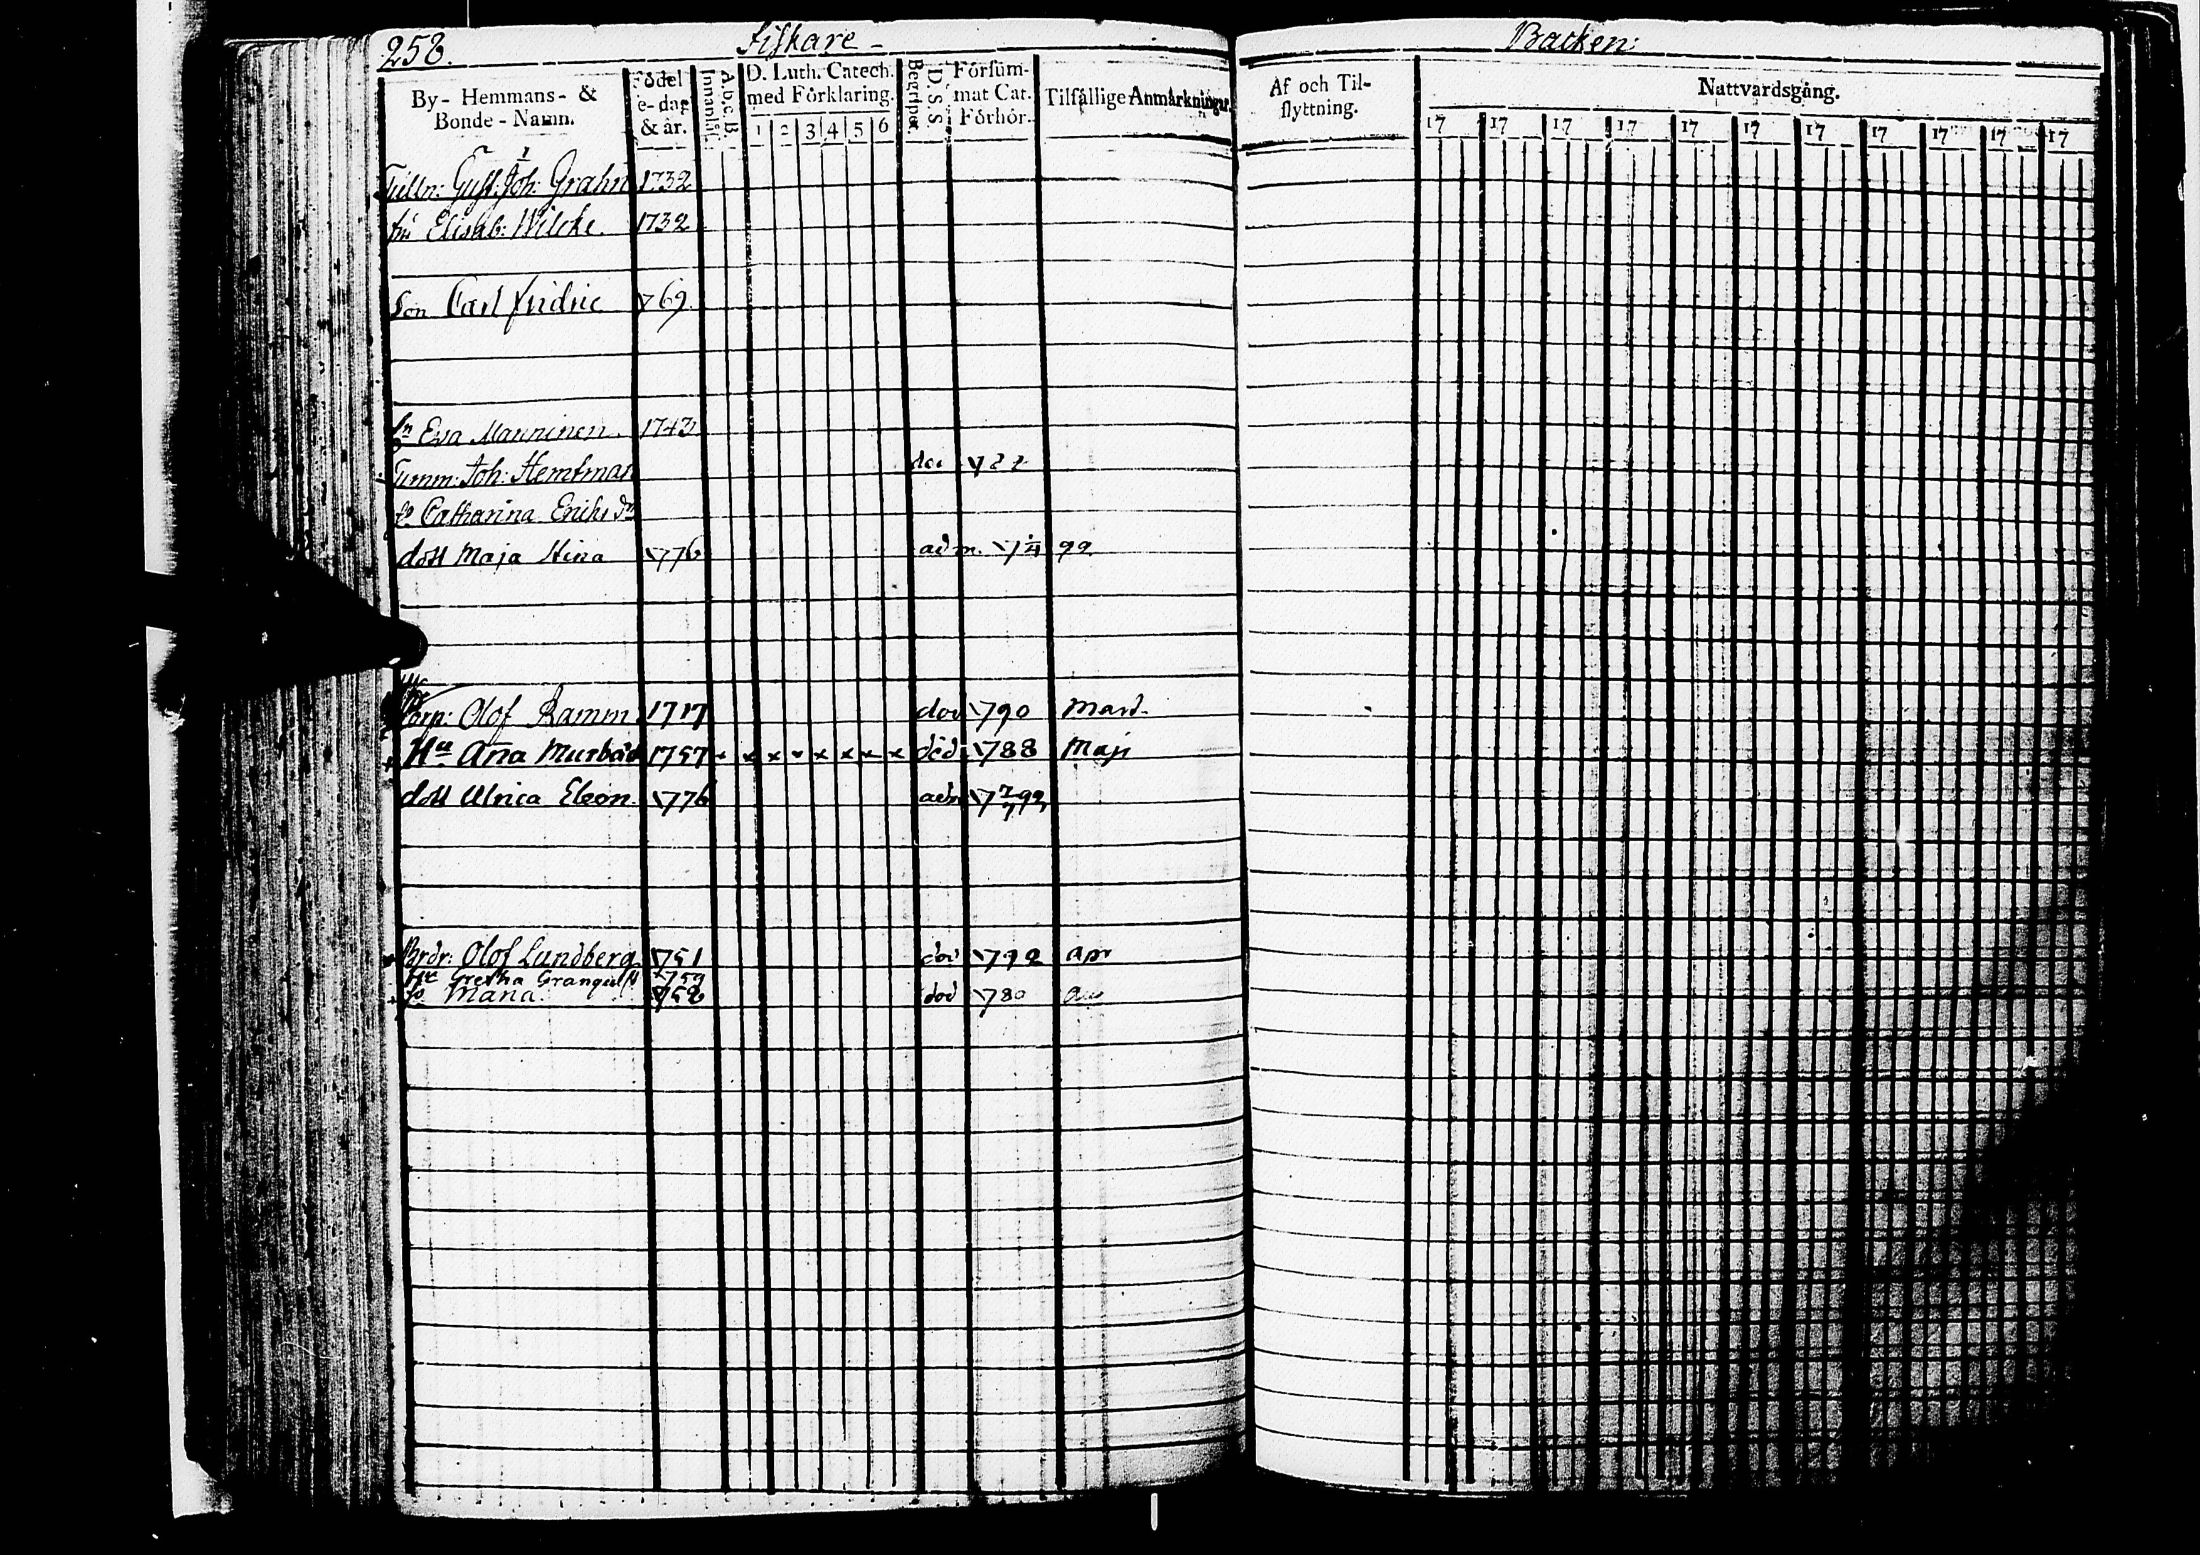 258.
Fiskare -
Backen:
By- Hemmans- &
Bonde-Namn.
Födel
e-dag
& år.
A.b.c.B.
Innanläs.
D. Luth. Catech.
med Förklaring.
1 2 3 4 5 6
D. S. S.
Begripet.
Försüm-
mat Cat.
Förhör.
Tilfällige Anmärkningar.
Af och Til-
flyttning.
Nattvardsgång.
17 17 17 17 17 17 17 17 17 17 17
Tulln: Gust: Joh: Grahn 1732
fru Elisab: Wilcke. 1732
Son Carl Fridric 769.
Eva Manninen. 1743
Timm: Joh: Hemtman
Catharina Eriks dr
dott Maja Stina 1776 adm. 99
Torp: Olof Ramm 1717 död 1790 Mart.
Hu Aña Murbäck 1757 x x x x x x x x död 1788 Maji
dott Ulrica Eleon. 1776 adm
Brdr: Olof Lundberg 1751 död 1792 apr
Hu Gretha Granquist 1759
Maria 1752 död 1780